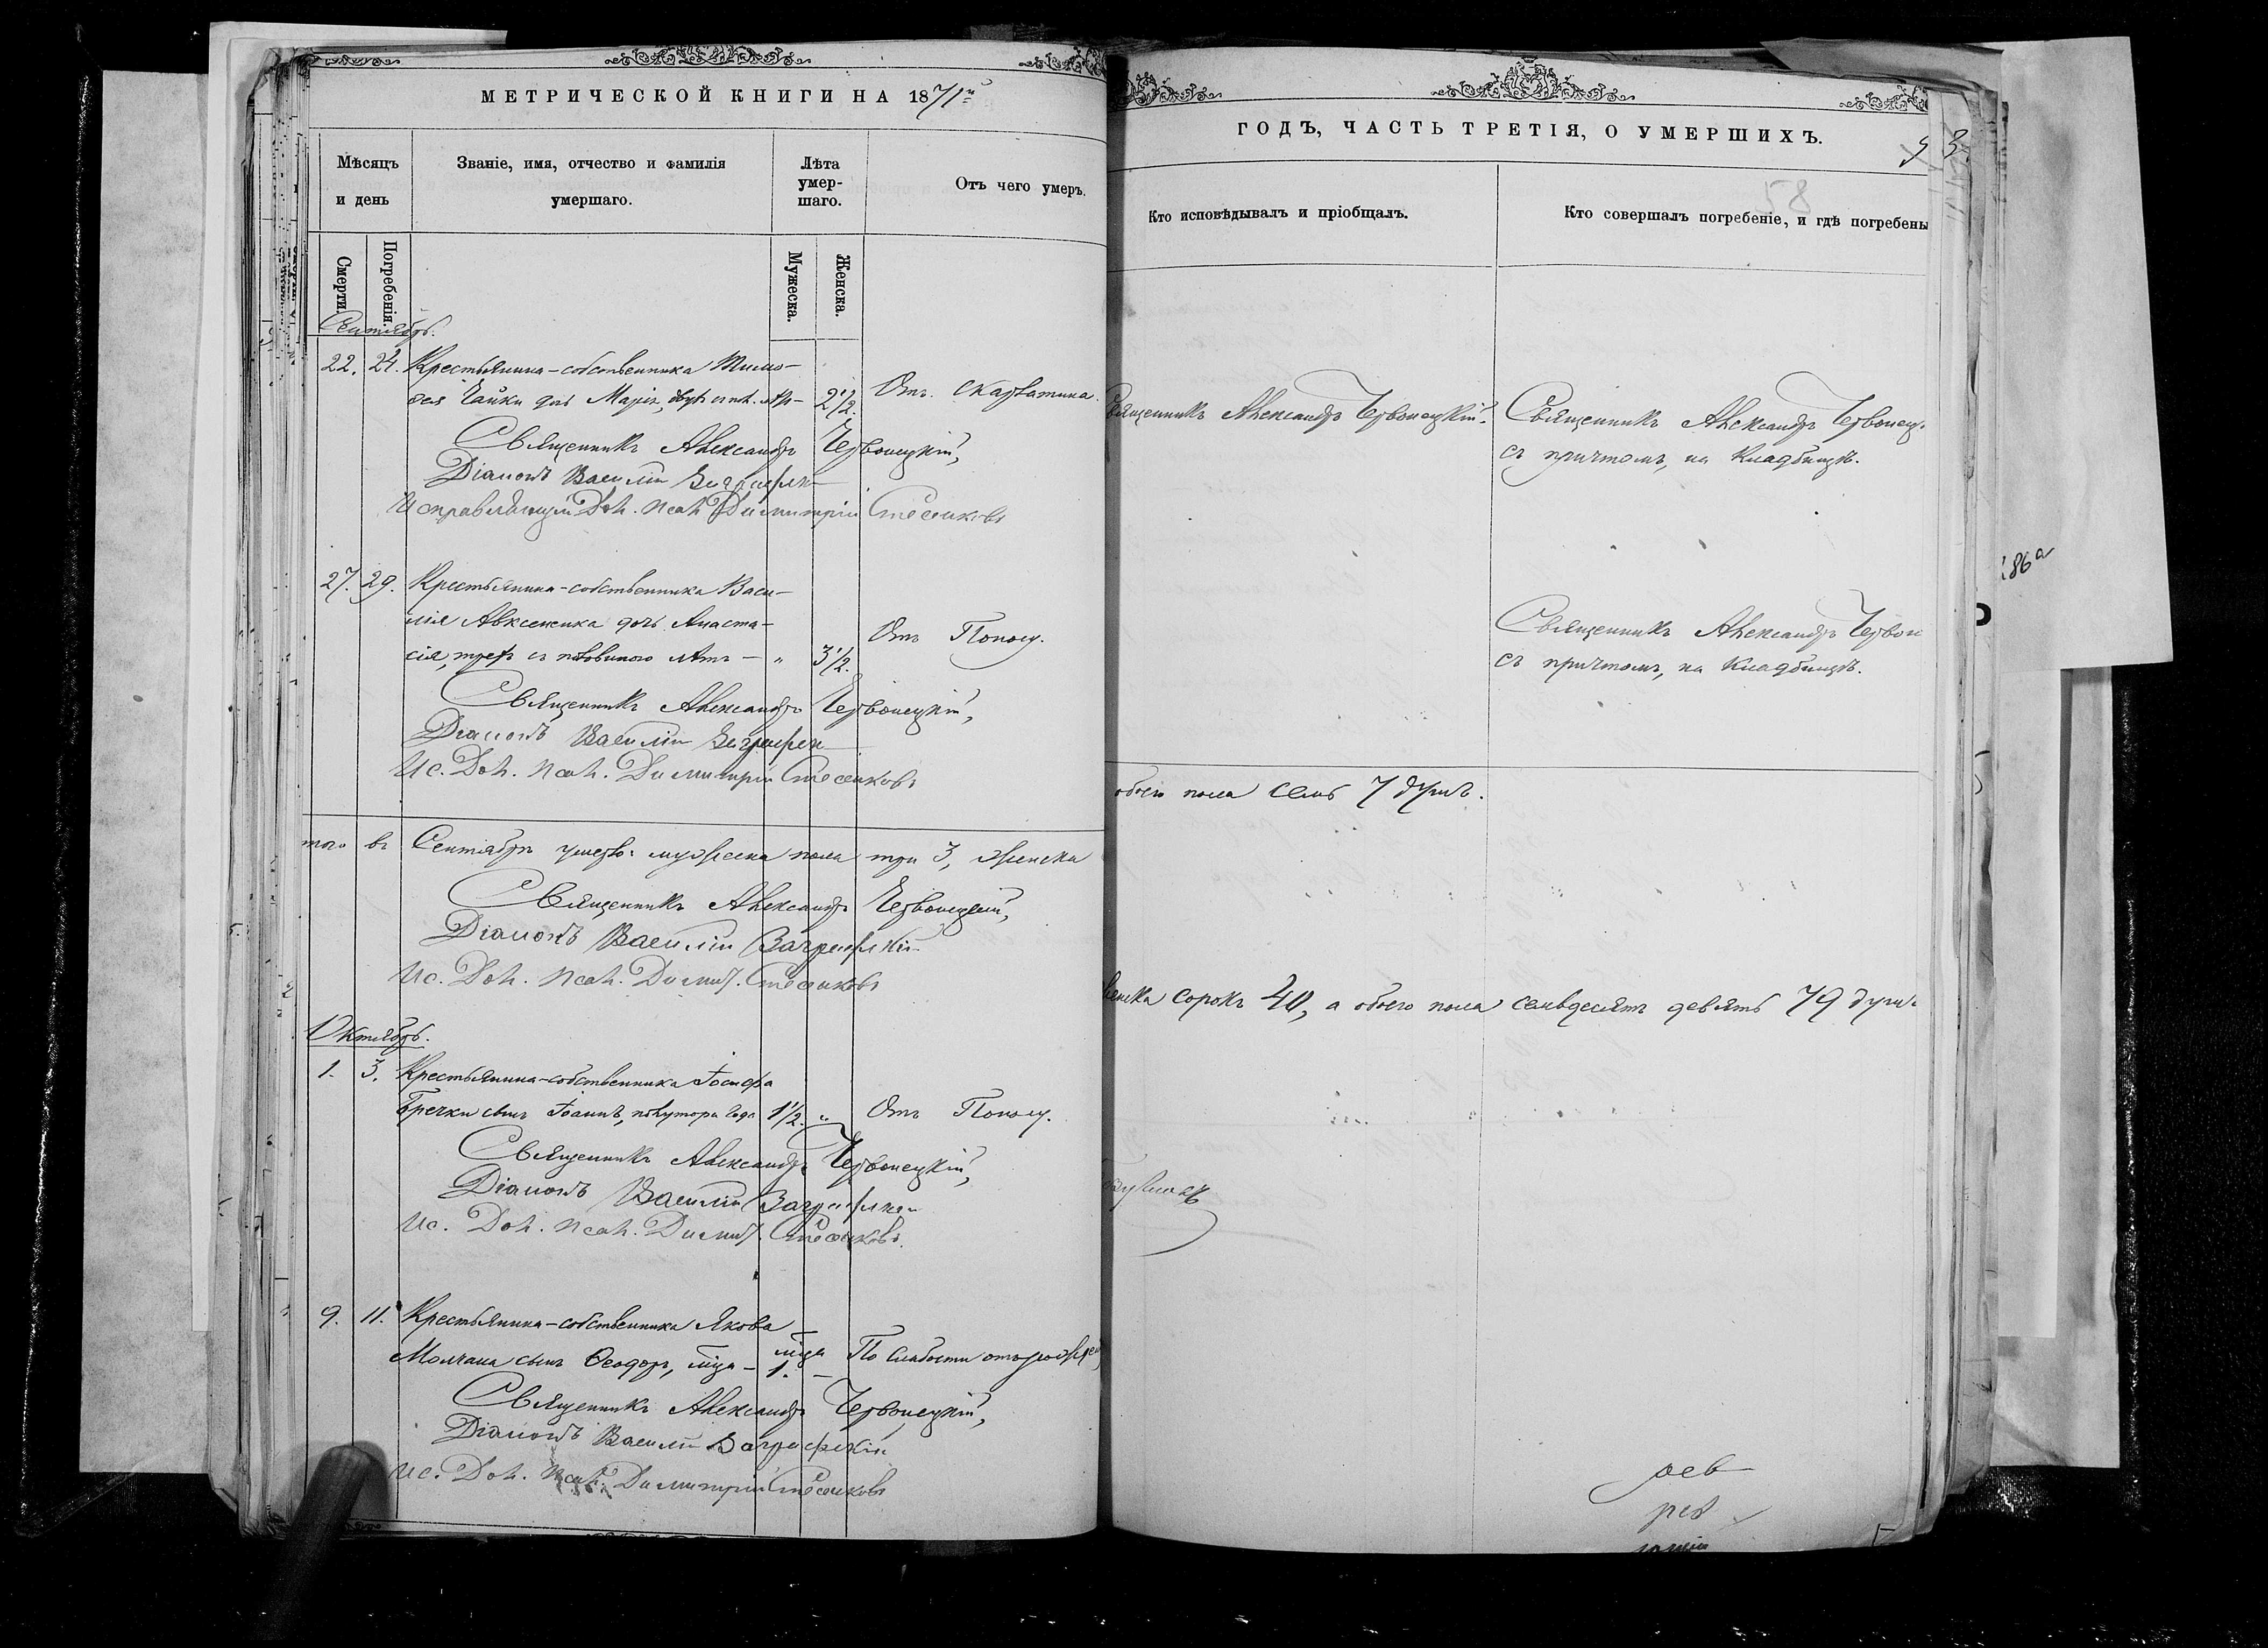 МЕТРИЧЕСКОЙ КНИГИ НА 1871й
Мѣсяцъ и день
Званіе, имя, отчество и фамилія умершаго.
Лѣта умер-шаго.
Отъ чего умеръ.
Смерти
Погребенія.
Мужеска.
Женска.
Сентябрь.
22. 24. Крестьянина-собственника Тимо-
фея Чайки дочь Марія, 2 1/2. Отъ Скарлатина.
Священникъ Александръ Червонецкій,
Діаконъ Василій
Исправляющій Дол. Псал. Димитрій
27. 29. Крестьянина-собственника Васи-
лія Авксененка дочь Анаста-
сія, трехъ съ половиною лѣтъ — „ 3 1/2. Отъ Поносу.
Священникъ Александръ Червонецкій,
Діаконъ Василій
Ис. Дол. Псал. Димитрій
того въ Сентябрѣ умерло: мужеска пола три 3, женска
Священникъ Александръ Червонецкій,
Діаконъ Василій
Ис. Дол. Псал. Димит.
Октябрь.
1. 3. Крестьянина-собственника Іосифа
Гречки сынъ Іоаннъ, полутора года 1 1/2. „ Отъ Поносу.
Священникъ Александръ Червонецкій,
Діаконъ Василій
Ис. Дол. Псал. Димит.
9. 11. Крестьянина-собственника Якова
Молчана сынъ Ѳеодоръ, мца — мца 1. — По слабости отъ рожден
Священникъ Александръ Червонецкій,
Діаконъ Василій
Ис. Дол. Псал. Димитрій
ГОДЪ, ЧАСТЬ ТРЕТІЯ, О УМЕРШИХЪ.
58
Кто исповѣдывалъ и пріобщалъ.
Кто совершалъ погребеніе, и гдѣ погребены
Священникъ Александръ Червонецкій.
Священникъ Александръ Червонец.
съ причтомъ, на кладбищѣ.
Священникъ Александръ Червон
съ причтомъ, на кладбищѣ.
обоего пола семь 7 душъ.
женска сорокъ 40, а обоего пола семьдесятъ девять 79 душъ
86а